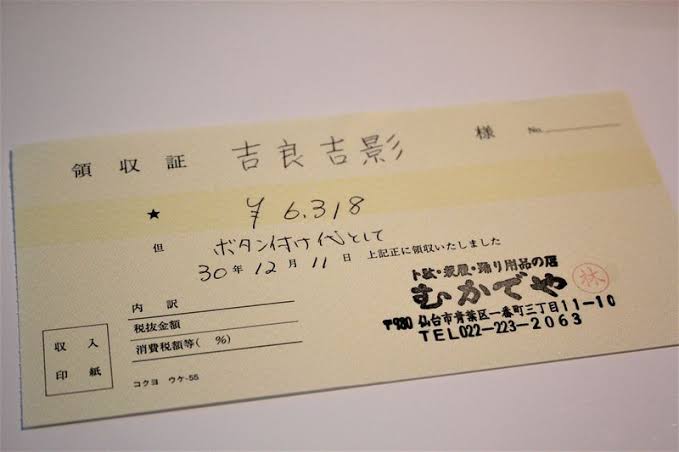 領収証 吉良吉影 様 No.
★ ¥6.318
但 ボタン付け代として
30年12月11日 上記正に領収いたしました
内訳
税抜金額
消費税額等( %)
収入
印紙
コクヨ ウケ-55
下駄・草履・踊り用品の店
むかでや
林
〒980 仙台市青葉区一番町三丁目11-10
TEL022-223-2063